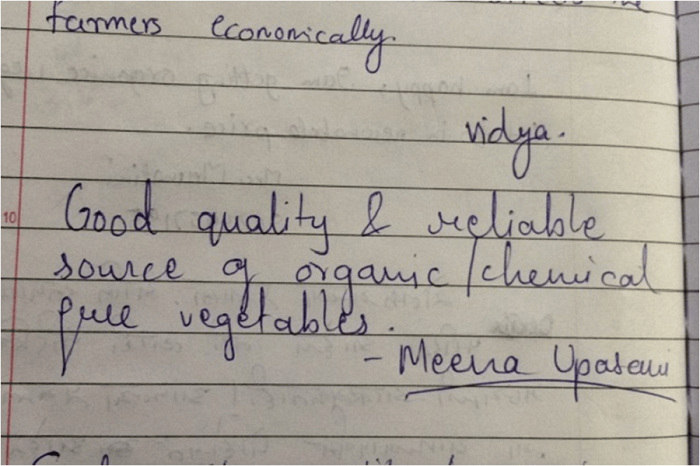 farmers economically.
vidya.
10
Good quality & reliable
source of organic/chemical
free vegetables.
- Meena Upasani